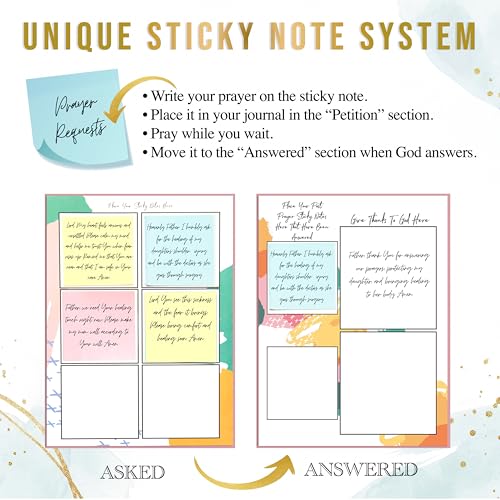 UNIQUE STICKY NOTE SYSTEM
Prayer
Requests
• Write your prayer on the sticky note.
• Place it in your journal in the “Petition” section.
• Pray while you wait.
• Move it to the “Answered” section when God answers.
Place Your Sticky Notes Here
Lord My heart feels anxious and
unsettled Please calm my mind
and helps me trust You when fear
rises up Remind me that You are
near and that I am safe in Your
care Amen
Heavenly Father I humbly ask
for the healing of my
daughters shoulder injury
and be with the doctors as she
goes through surgery
Father we need Your healing
touch right now Please make
my mom well according to
Your will Amen
Lord You see this sickness
and the fear it brings
Please bring comfort and
healing soon Amen
Place Your Past
Prayer Sticky Notes
Here That Have Been
Answered
Heavenly Father I humbly ask
for the healing of my
daughters shoulder injury
and be with the doctors as she
goes through surgery
Give Thanks To God Here
Father thank You for answering
our prayers protecting my
daughter and bringing healing
to her body Amen
ASKED
ANSWERED